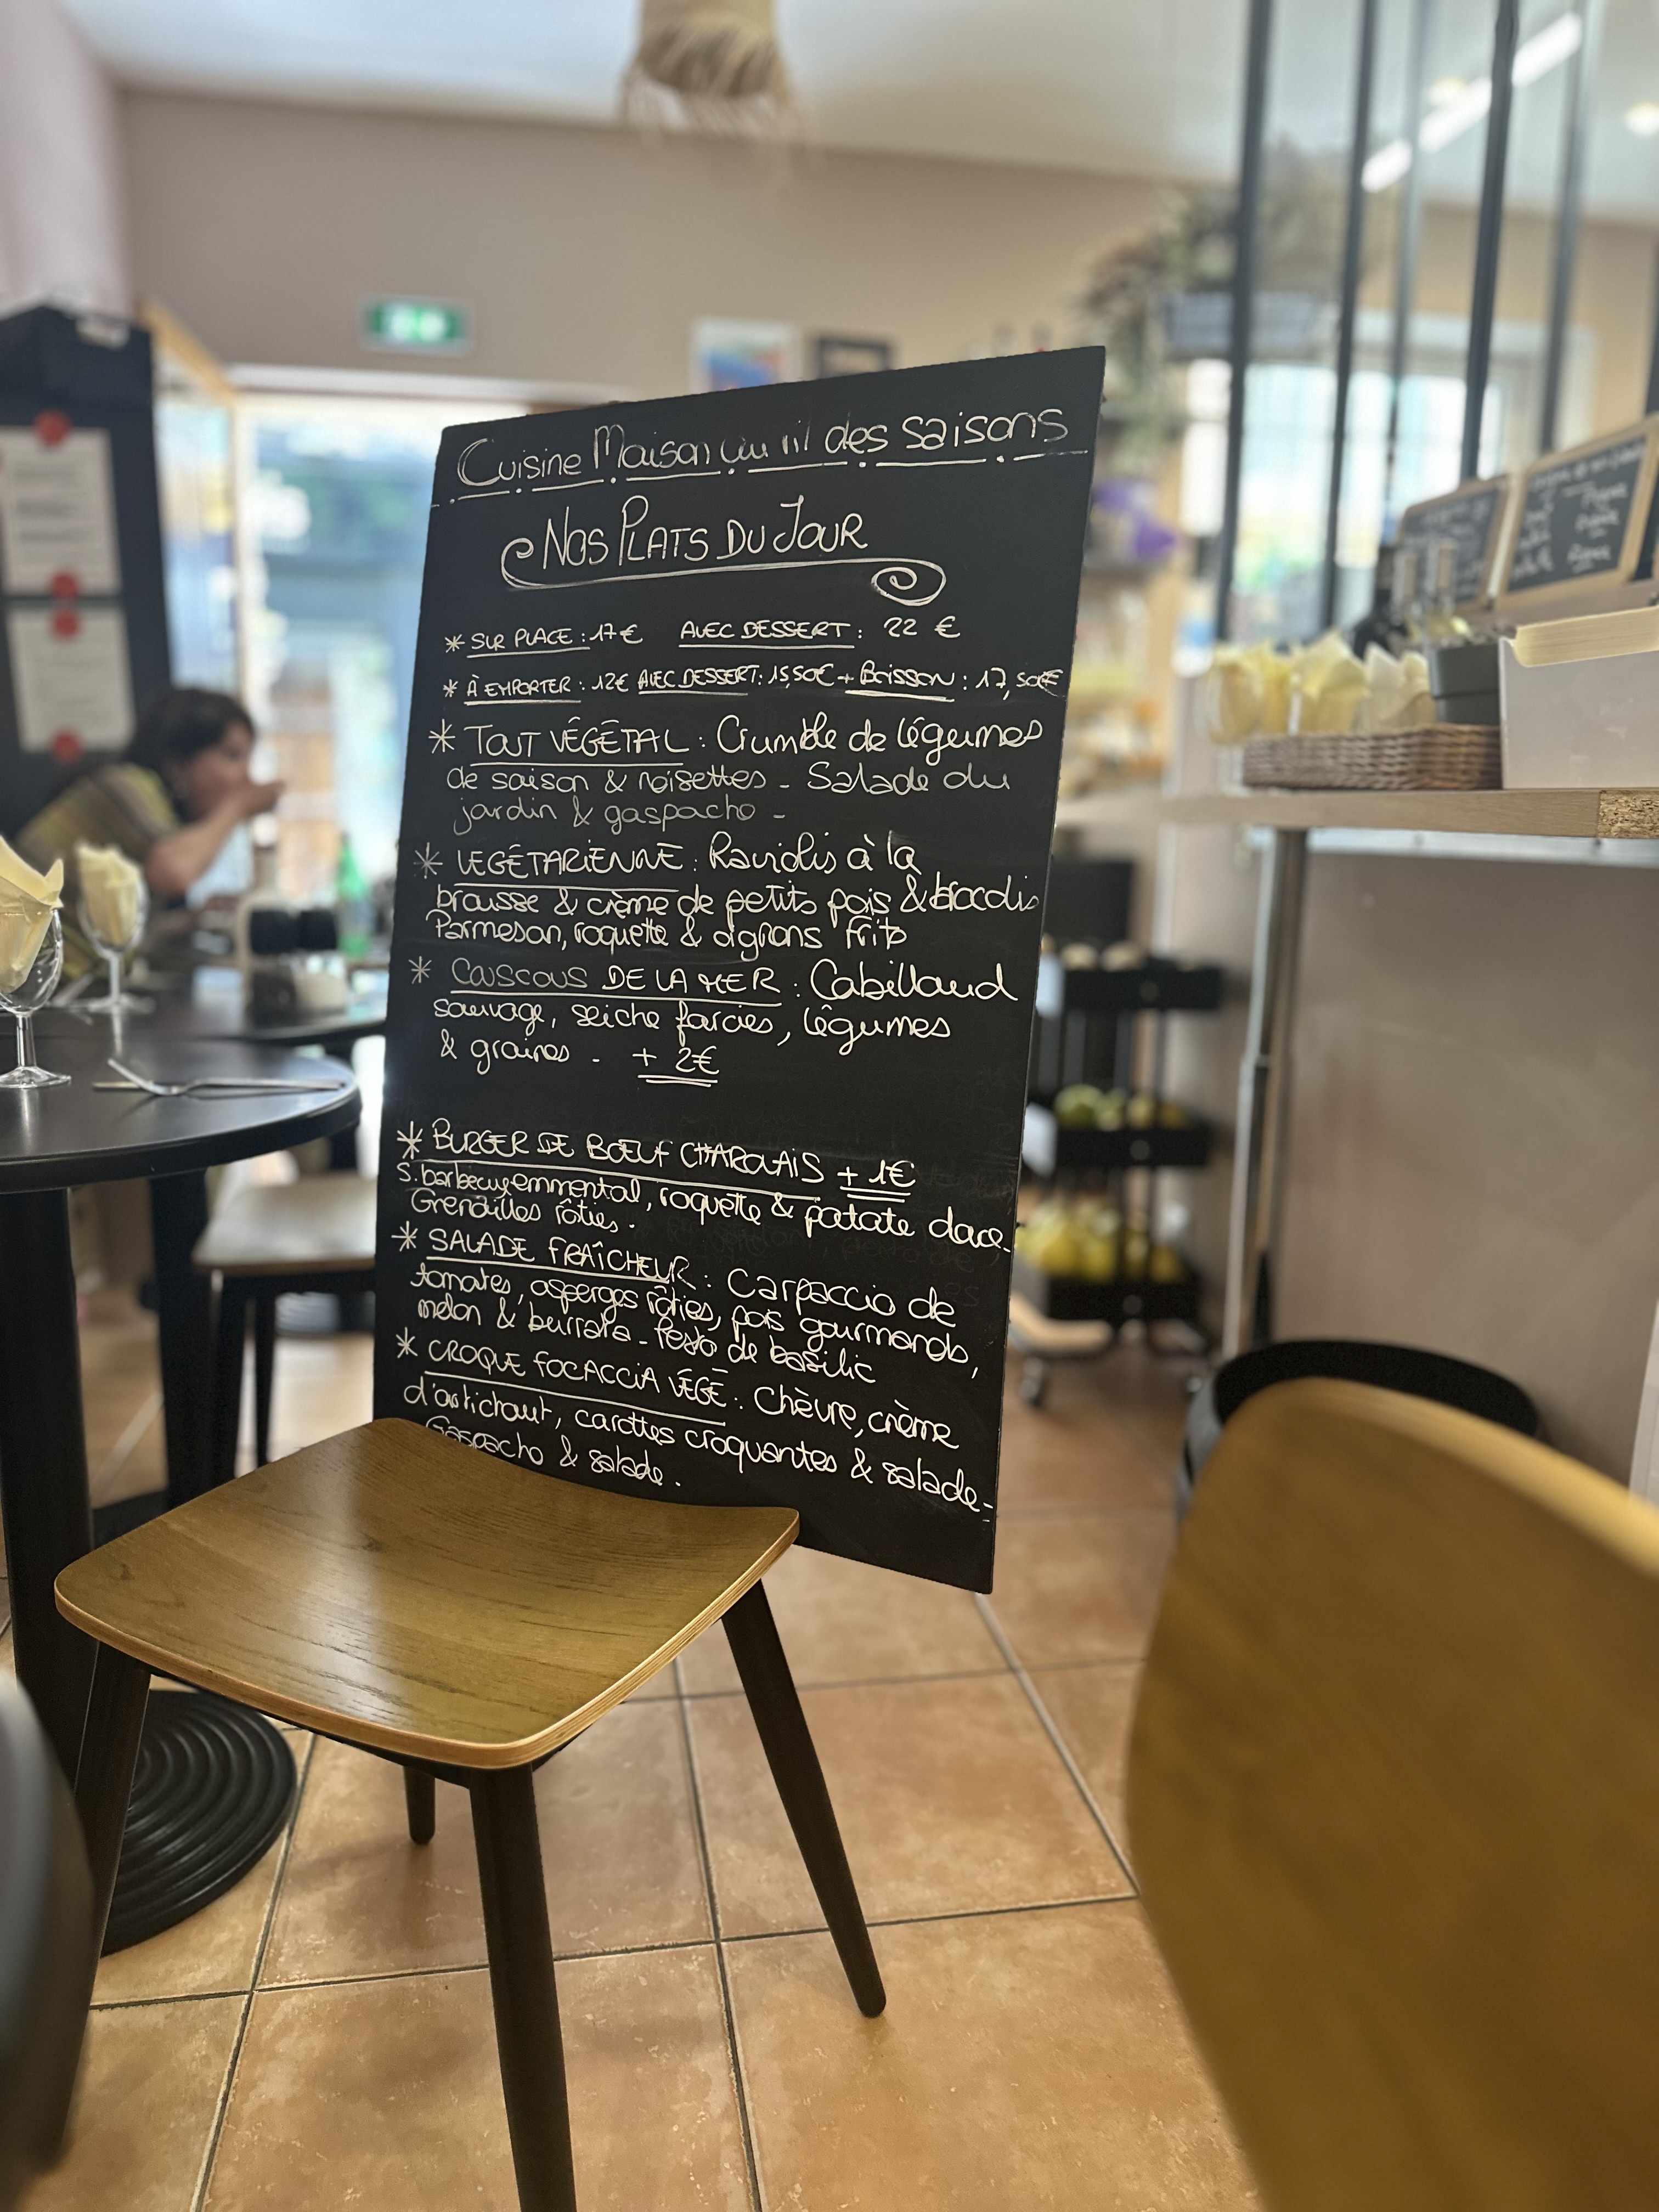 Cuisine Maison au fil des saisons
NOS PLATS DU JOUR
* SUR PLACE : 17€ AVEC DESSERT : 22 €
* À EMPORTER : 12€ AVEC DESSERT : 15,50€ + BOISSON : 17,50€
* TOUT VÉGÉTAL : Crumble de légumes
de saison & noisettes - Salade du
jardin & gaspacho -
* VEGÉTARIENNE : Raviolis à la
brousse & crème de petits pois & brocolis
Parmesan, roquette & oignons frits
* COUSCOUS DE LA MER : Cabillaud
sauvage, seiche farcies, légumes
& graines - + 2€
* BURGER DE BŒUF CHAROLAIS + 1€
S. barbecue, emmental, roquette & patate douce -
Grenailles rôties .
* SALADE FRAÎCHEUR : Carpaccio de
tomates, asperges rôties, pois gourmands,
melon & burrata - Pesto de basilic
* CROQUE FOCACCIA VÉGÉ : Chèvre, crème
d'artichaut, carottes croquantes & salade -
Gaspacho & salade .